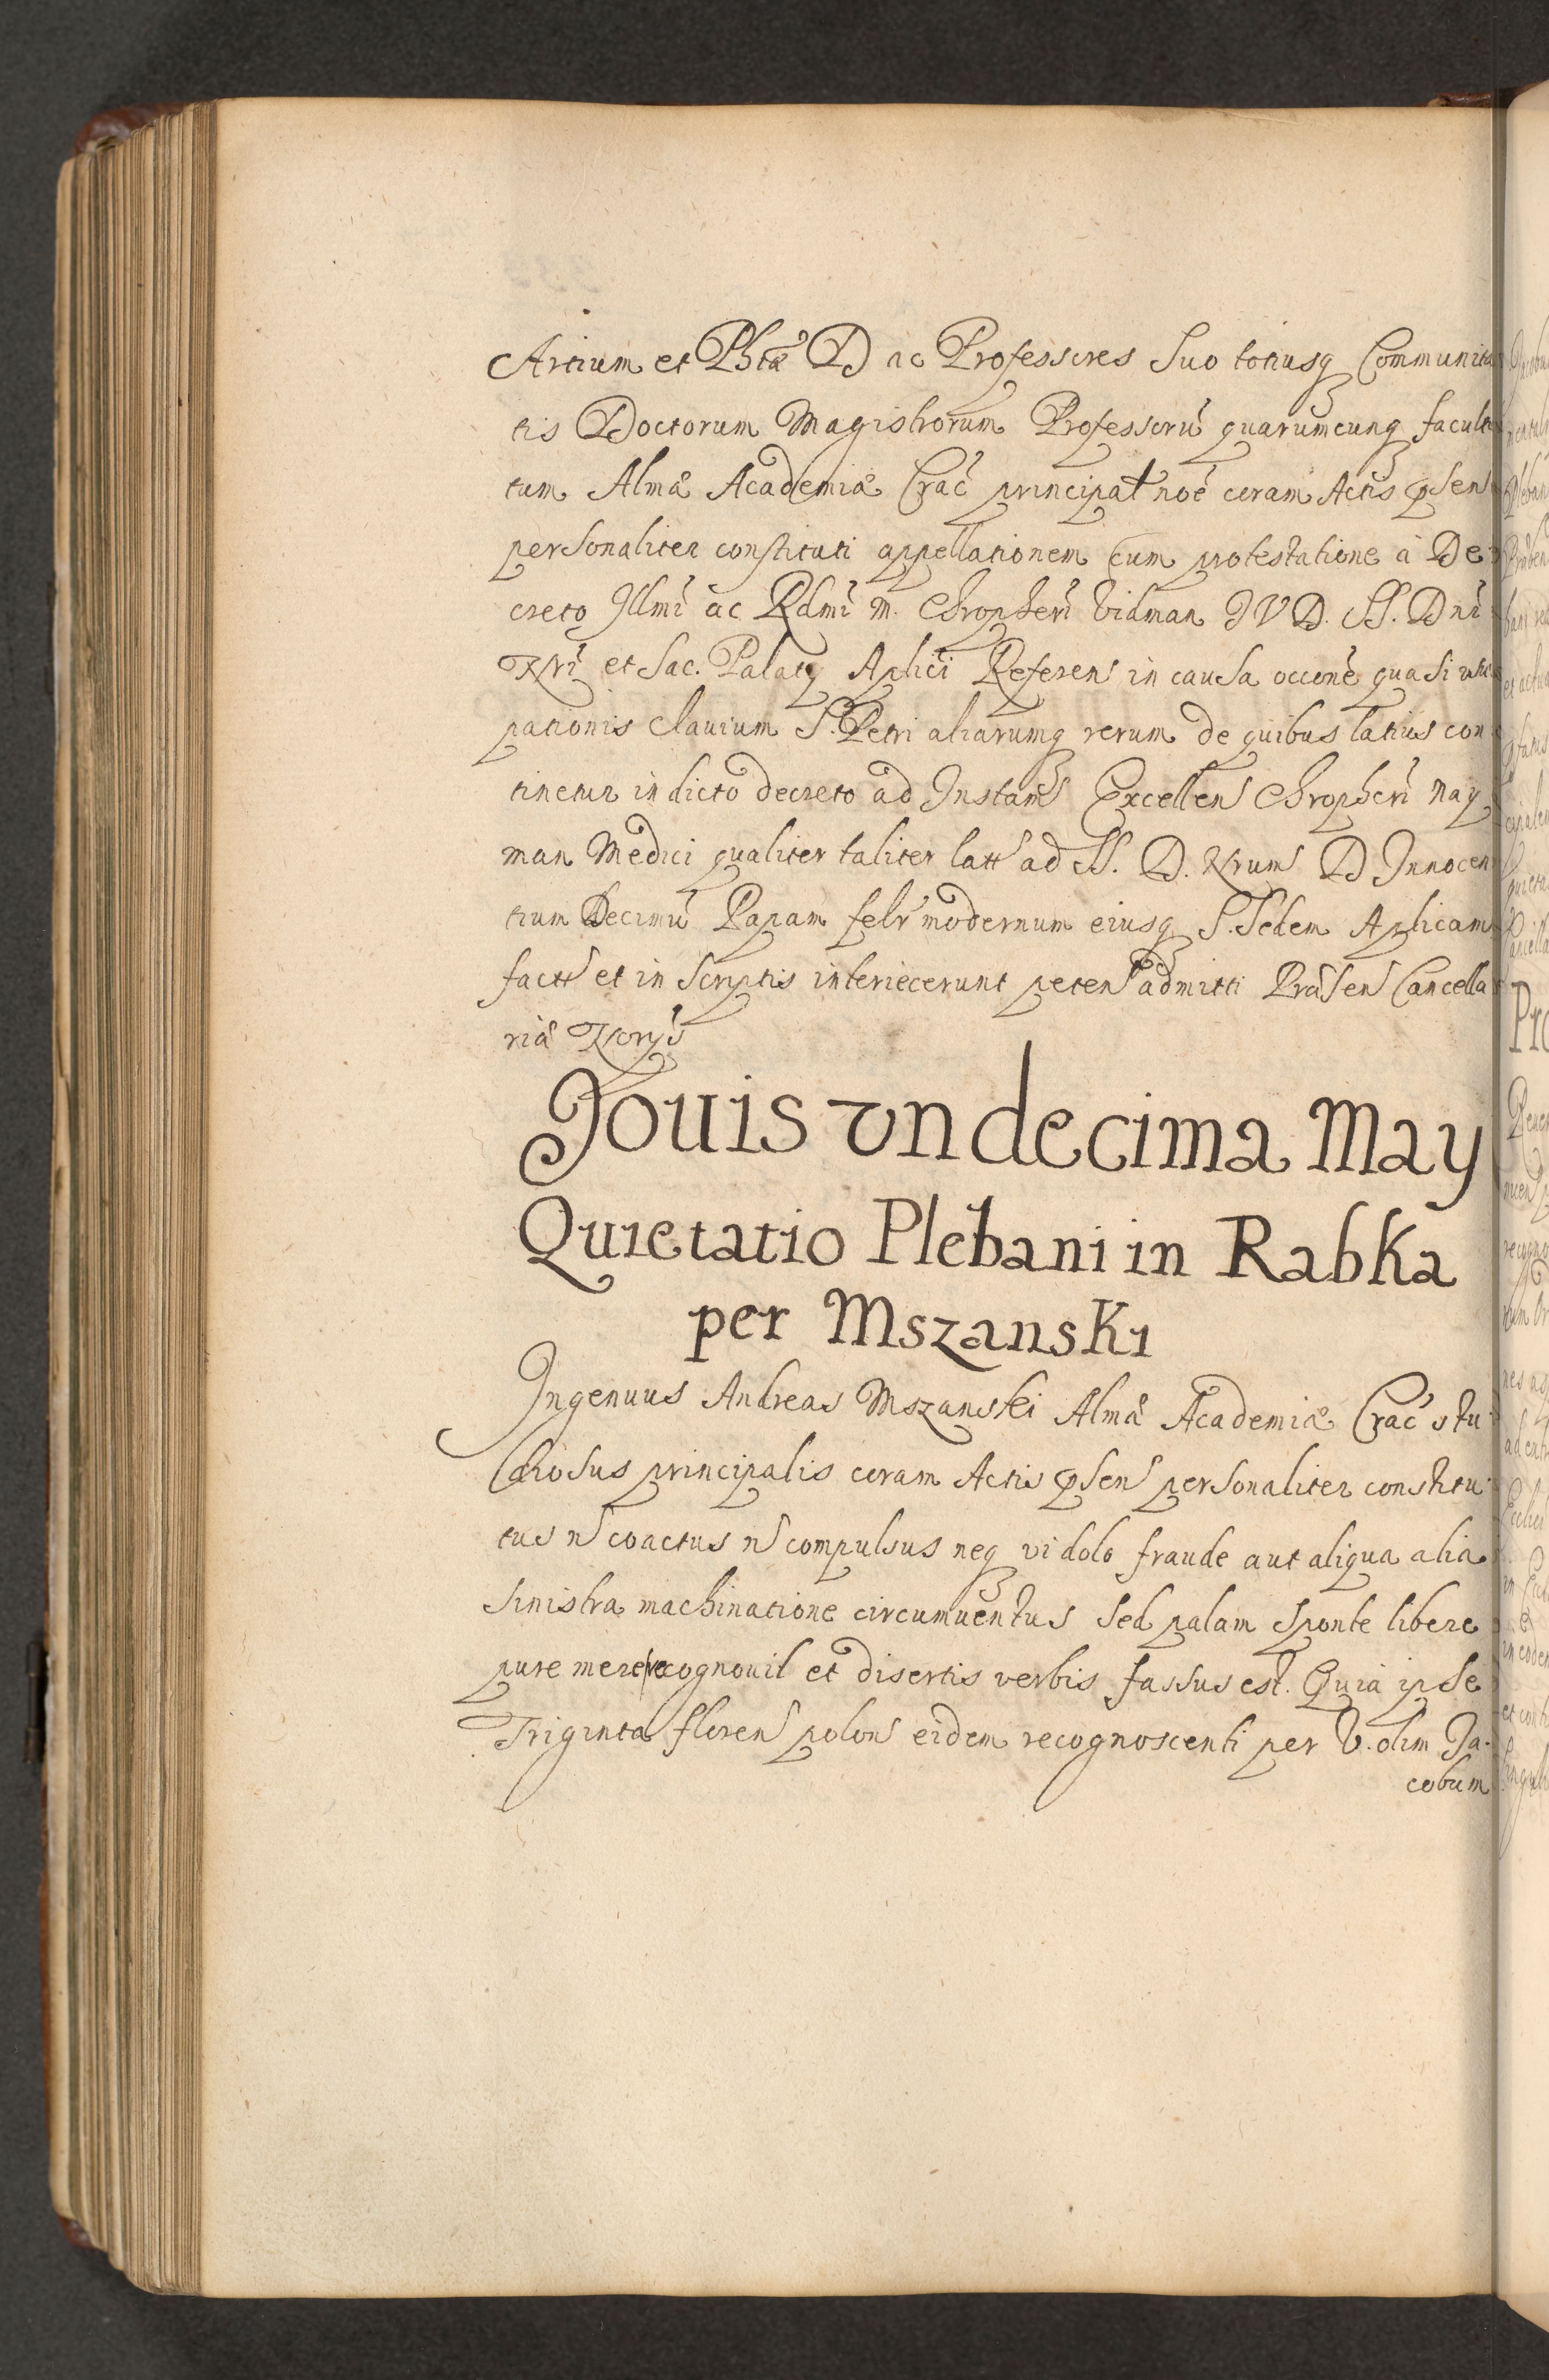 Artium et Phiæ D ac Professores Suo totiusq Communita
tis Doctorum Magistrorum Professorũ quarumcunq faculta
tum Almæ Academiæ Crac̃ principal noẽ coram Actis psen
personaliter constituti appellationem cum protestatione à De
creto Illmi ac Rdmi M. Chropheri Vidman I V D. SS. Dni
Nri et Sac. Palaty Aplici Referen in causa occone quasi usur
pationis Clauium S. Petri aliarumq rerum de quibus latius con
tinetur in dicto decreto ad Instam Excellen Chropheri Nay
man Medici qualiter taliter latt ad SS. D. Nrum D Innocen
tium Decimũ Papam felr modernum eiusq S. Sedem Aplicam
factt et in Scriptis interiecerunt peten admitti Præsen Cancella
riæ Norys
Jouis vndecima May
Quietatio Plebani in Rabka
per Mszanski
Ingenuus Andreas Mszanski Almæ Academiæ Crac̃ stu
diosus principalis coram Actis psen personaliter constitu
tus n coactus n compulsus neq vi dolo fraude aut aliqua alia
sinistra machinatione circumuentus sed palam sponte libere
pure mere recognouit et disertis verbis fassus est. Quia ipse
Triginta floren polon eidem recognoscenti per V. olim Ja
cobum